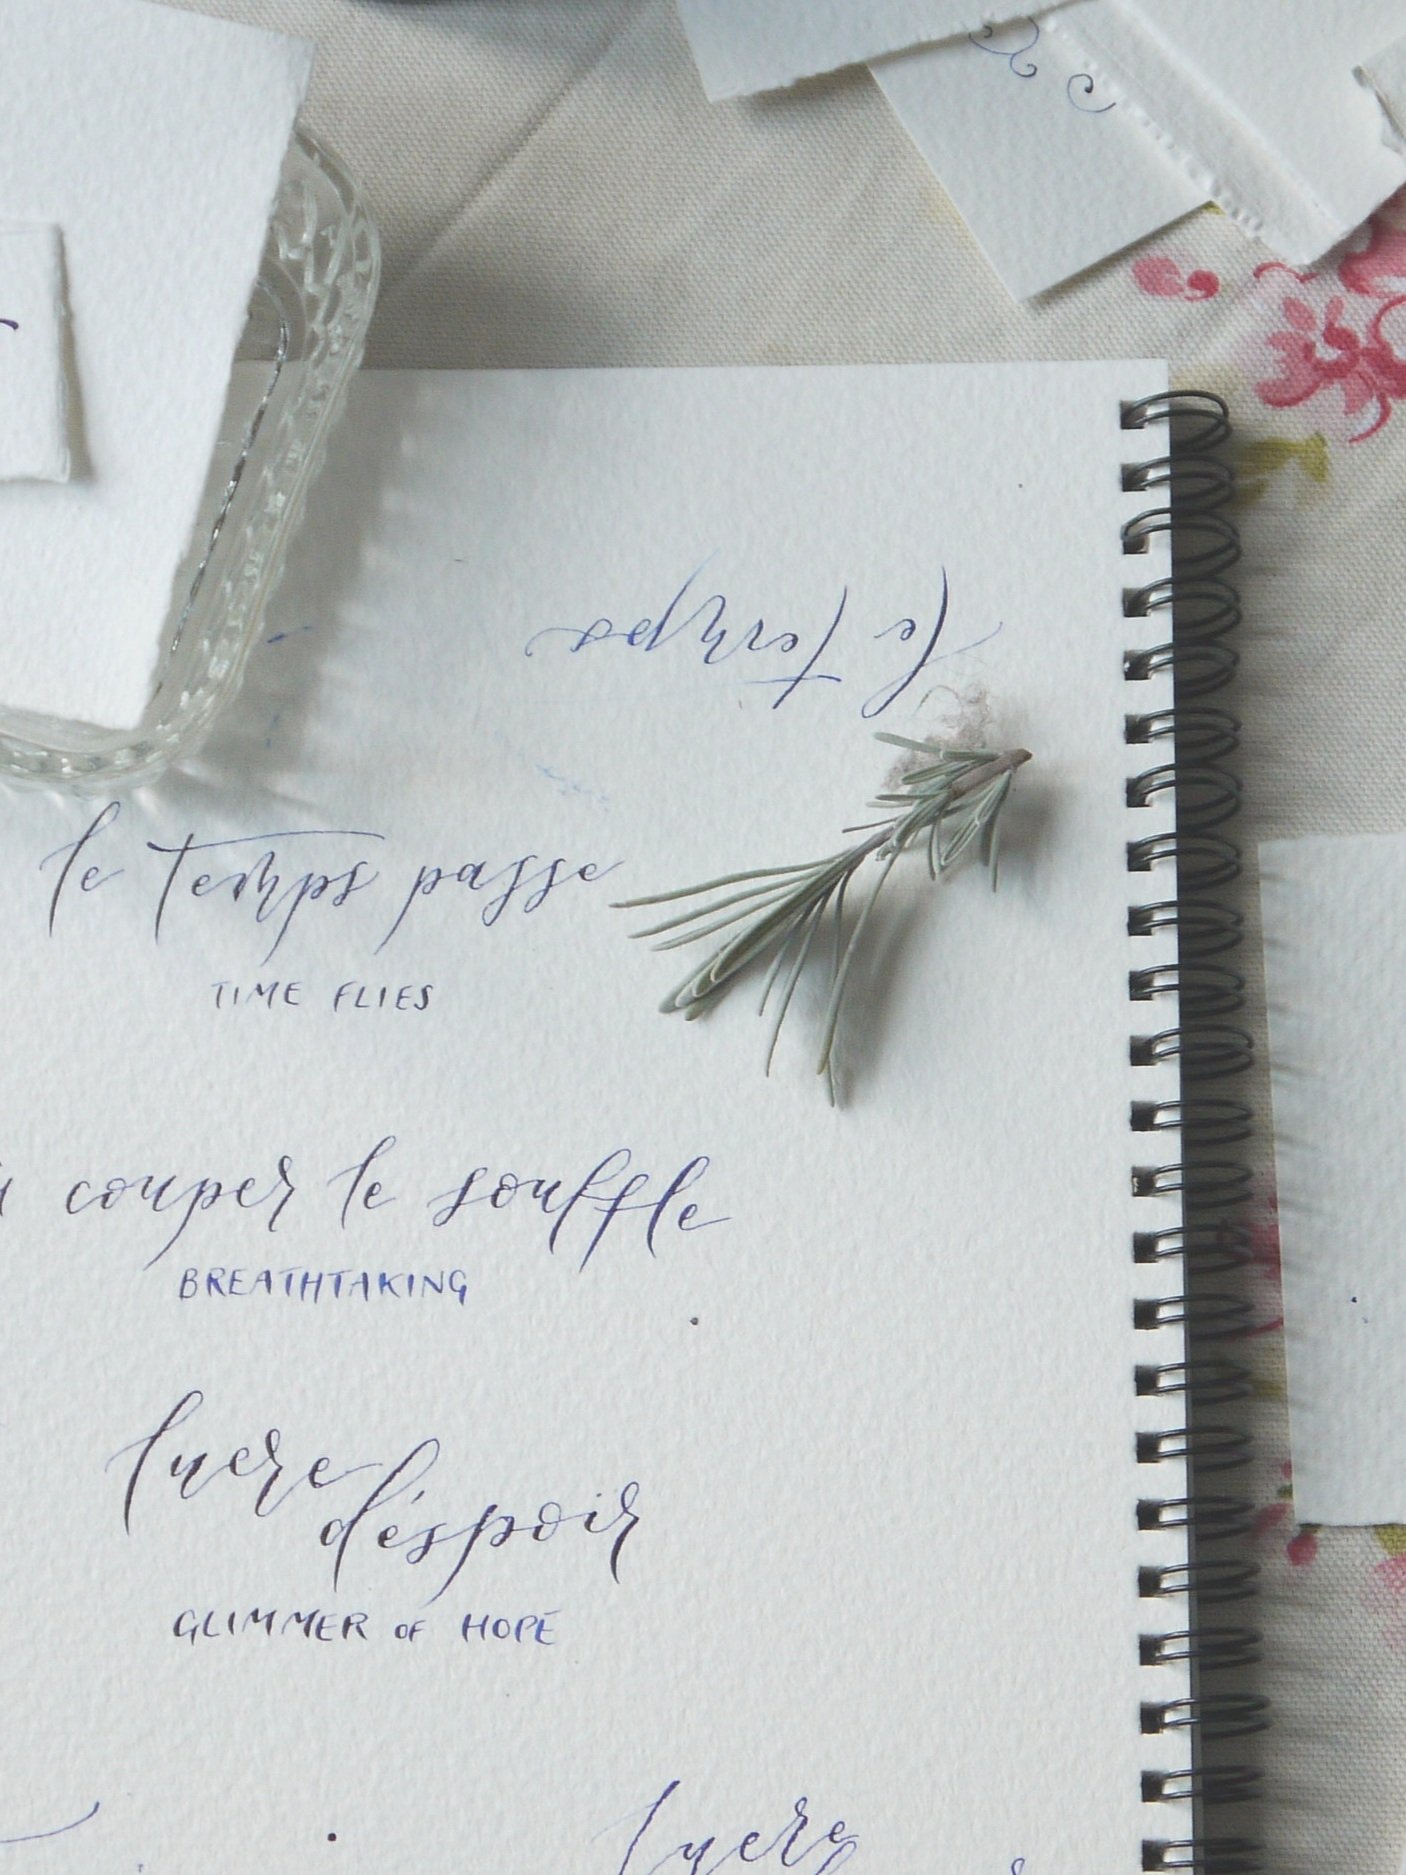 le temps
le temps passe
TIME FLIES
couper le souffle
BREATHTAKING
luere
d'éspoir
GLIMMER OF HOPE
luere